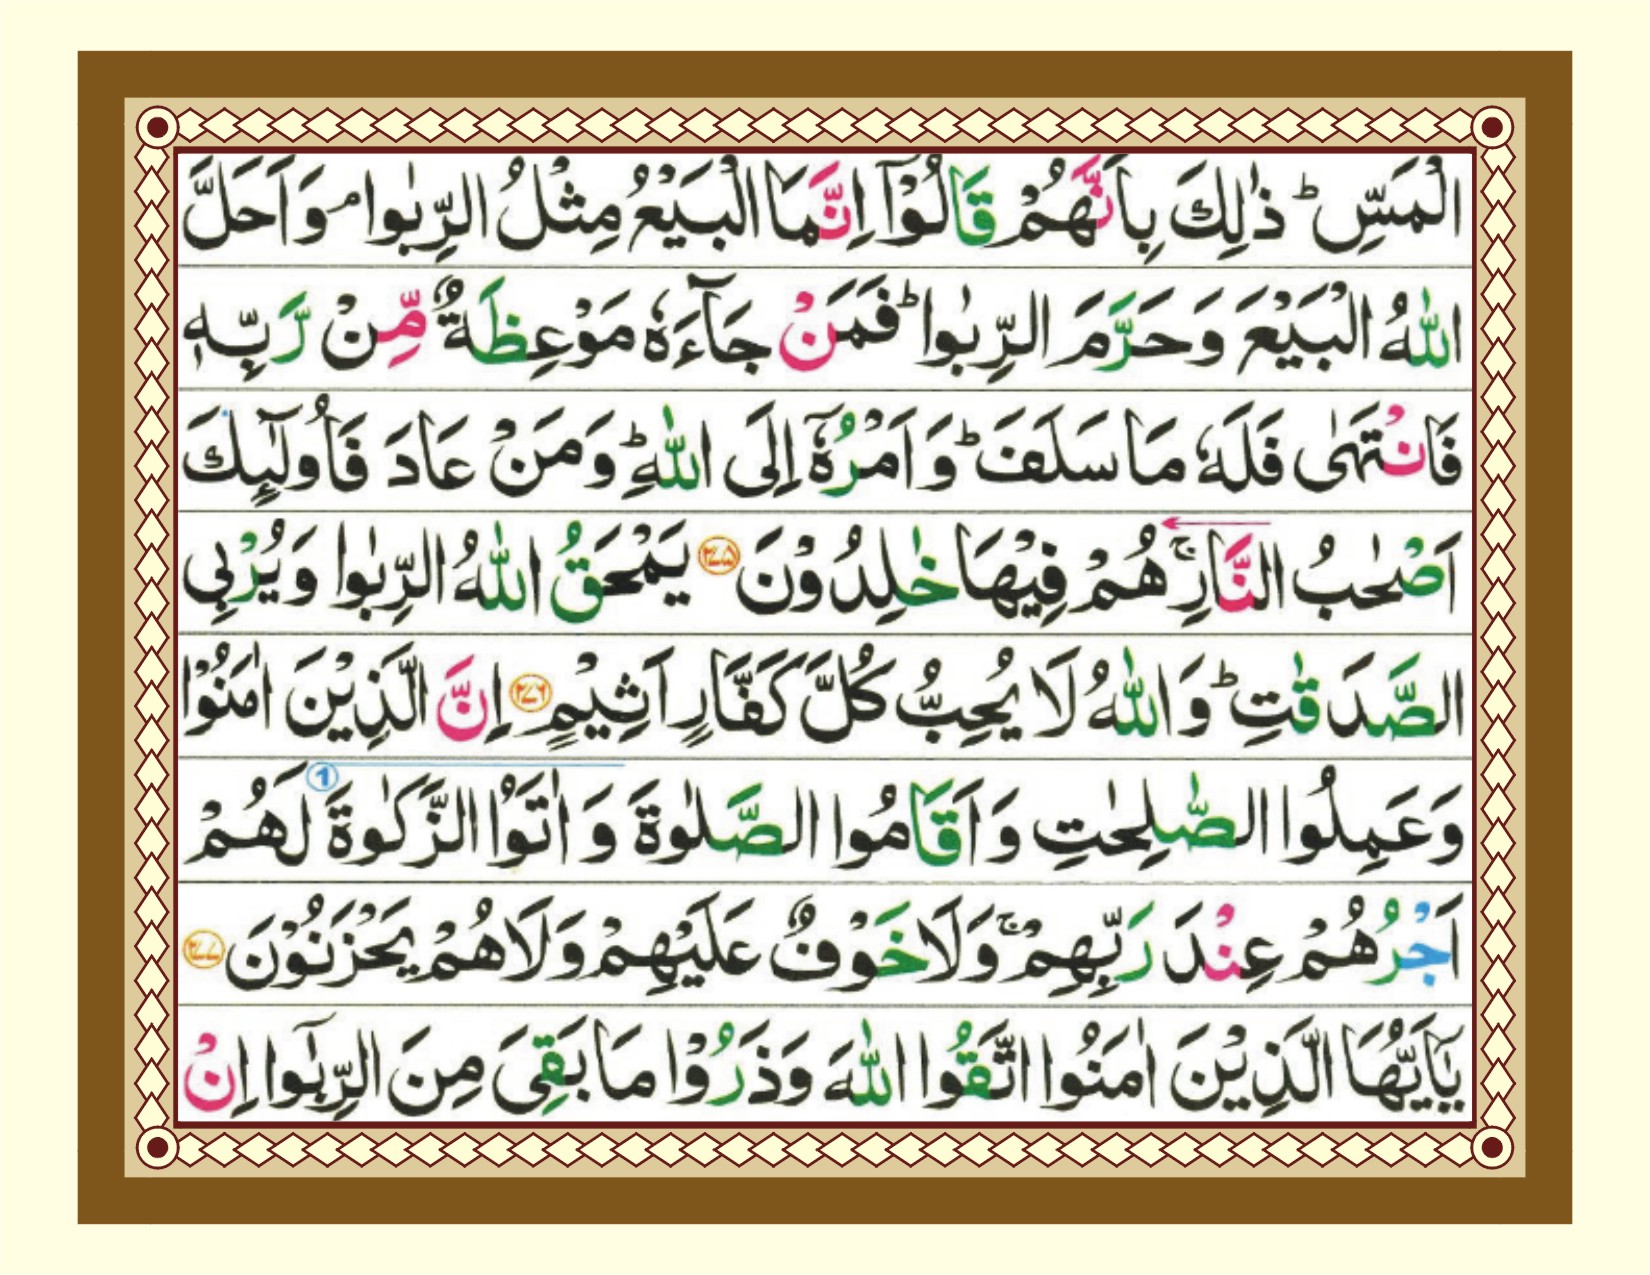 الْمَسِّ ؕ ذٰلِكَ بِاَنَّهُمْ قَالُوْۤا اِنَّمَا الْبَيْعُ مِثْلُ الرِّبٰوا ۘ وَاَحَلَّ
اللّٰهُ الْبَيْعَ وَحَرَّمَ الرِّبٰوا ؕ فَمَنْ جَآءَهٗ مَوْعِظَةٌ مِّنْ رَّبِّهٖ
فَانْتَهٰى فَلَهٗ مَا سَلَفَ ؕ وَاَمْرُهٗۤ اِلَى اللّٰهِ ؕ وَمَنْ عَادَ فَاُولٰٓئِكَ
اَصْحٰبُ النَّارِ ۚ هُمْ فِيْهَا خٰلِدُوْنَ ۲۷۵ يَمْحَقُ اللّٰهُ الرِّبٰوا وَيُرْبِى
الصَّدَقٰتِ ؕ وَاللّٰهُ لَا يُحِبُّ كُلَّ كَفَّارٍ اَثِيْمٍ ۲۷۶ اِنَّ الَّذِيْنَ اٰمَنُوْا
وَعَمِلُوا الصّٰلِحٰتِ وَاَقَامُوا الصَّلٰوةَ وَاٰتَوُا الزَّكٰوةَ 1 لَهُمْ
اَجْرُهُمْ عِنْدَ رَبِّهِمْ ۚ وَلَا خَوْفٌ عَلَيْهِمْ وَلَا هُمْ يَحْزَنُوْنَ ۲۷۷
يٰۤاَيُّهَا الَّذِيْنَ اٰمَنُوا اتَّقُوا اللّٰهَ وَذَرُوْا مَا بَقِىَ مِنَ الرِّبٰۤوا اِنْ